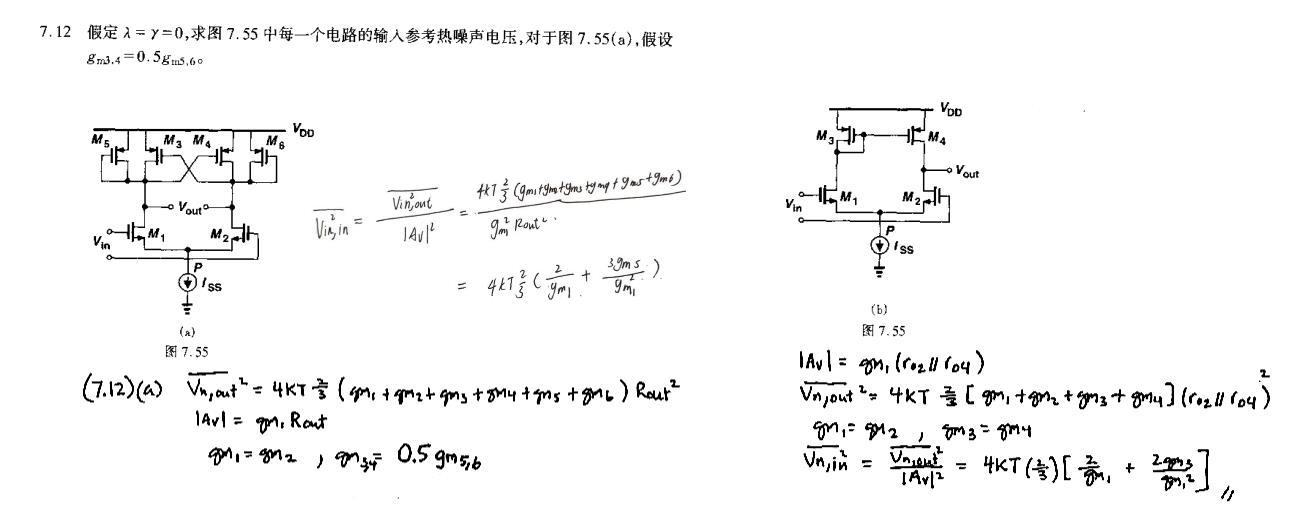 7.12 假定 λ = γ = 0,求图 7.55 中每一个电路的输入参考热噪声电压,对于图 7.55(a),假设
gm3,4 = 0.5gm5,6。
VDD
M5 M3 M4 M6
Vout
Vin M1 M2
P
ISS
(a)
图 7.55
Vin,in² = Vin,out² / |Av|² = 4kT 2/3 (gm1+gm2+gm3+gm4+gm5+gm6) / gm² Rout²
= 4kT 2/3 ( 2/gm1 + 3gm5/gm1² )
(7.12)(a) Vn,out² = 4KT 2/3 (gm1 + gm2 + gm3 + gm4 + gm5 + gm6) Rout²
|Av| = gm1 Rout
gm1 = gm2 , gm3,4 = 0.5 gm5,6
VDD
M3 M4
Vout
Vin M1 M2
P
ISS
(b)
图 7.55
|Av| = gm1 (ro2 // ro4)
Vn,out² = 4KT 2/3 [ gm1 + gm2 + gm3 + gm4 ] (ro2 // ro4)²
gm1 = gm2 , gm3 = gm4
Vn,in² = Vn,out² / |Av|² = 4KT (2/3) [ 2/gm1 + 2gm3/gm1² ] //